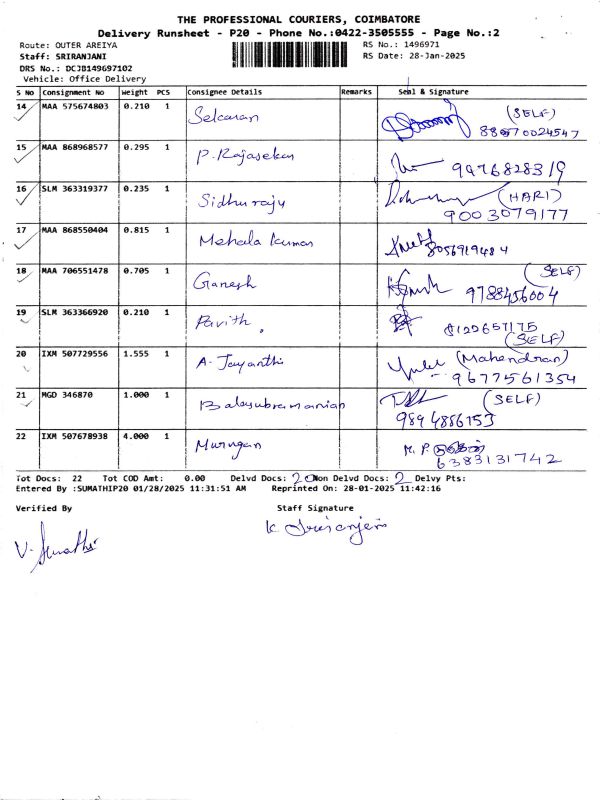 THE PROFESSIONAL COURIERS, COIMBATORE
Delivery Runsheet - P20 - Phone No.:0422-3505555 - Page No.:2
Route: OUTER AREIYA RS No.: 1496971
Staff: SRIRANJANI RS Date: 28-Jan-2025
DRS No.: DCJB149697102
Vehicle: Office Delivery
S No Consignment No Weight PCS Consignee Details Remarks Seal & Signature
14 MAA 575674803 0.210 1 Selvaran (SELF)
15 MAA 868968577 0.295 1 P. Rajasekar 9976828319
16 SLM 363319377 0.235 1 Sidhuraju (HARI)
9003079177
17 MAA 868550404 0.815 1 Mehala Kumar 8056919484
18 MAA 706551478 0.705 1 Ganesh (SELF)
9788456004
19 SLM 363366920 0.210 1 Pavith. 8122657175
(SELF)
20 IXM 507729556 1.555 1 A. Jayanthi (Mahendran)
9677561354
21 MGD 346870 1.000 1 Balasubramanian (SELF)
9894886153
22 IXM 507678938 4.000 1 Murugan M. P.
6383131742
Tot Docs: 22 Tot COD Amt: 0.00 Delvd Docs: 20 Non Delvd Docs: 2 Delvy Pts:
Entered By :SUMATHIP20 01/28/2025 11:31:51 AM Reprinted On: 28-01-2025 11:42:16
Verified By Staff Signature
V. Sumathi K Sriranjani